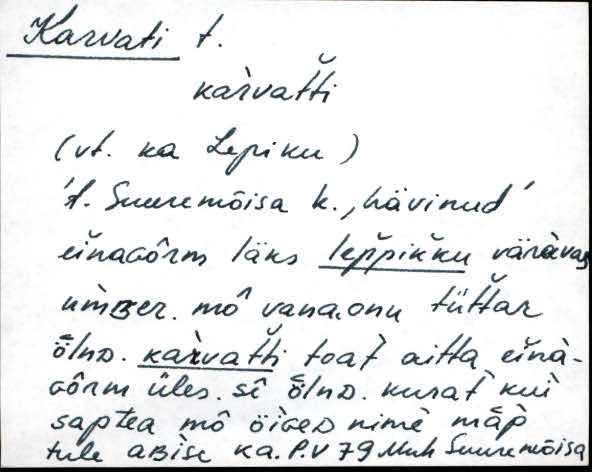 Karvati t.
kàrvat̆ti
(vt. ka Lepiku)
't. Suuremõisa k., hävinud'
eĭnaGôrm läks lep̆pik̆ku väràvas
ùmBer. mô vana, onu tüt̆tar
ŏ̄lnD. kàrvat̆ti toat̀ aitta eĭnà-
Gôrm üles. sî ŏ̄lnD. kurat̀ kui
saptea mô öiGeD nimè
tule aBisε ka. P.V 79 Muh Suuremõisa